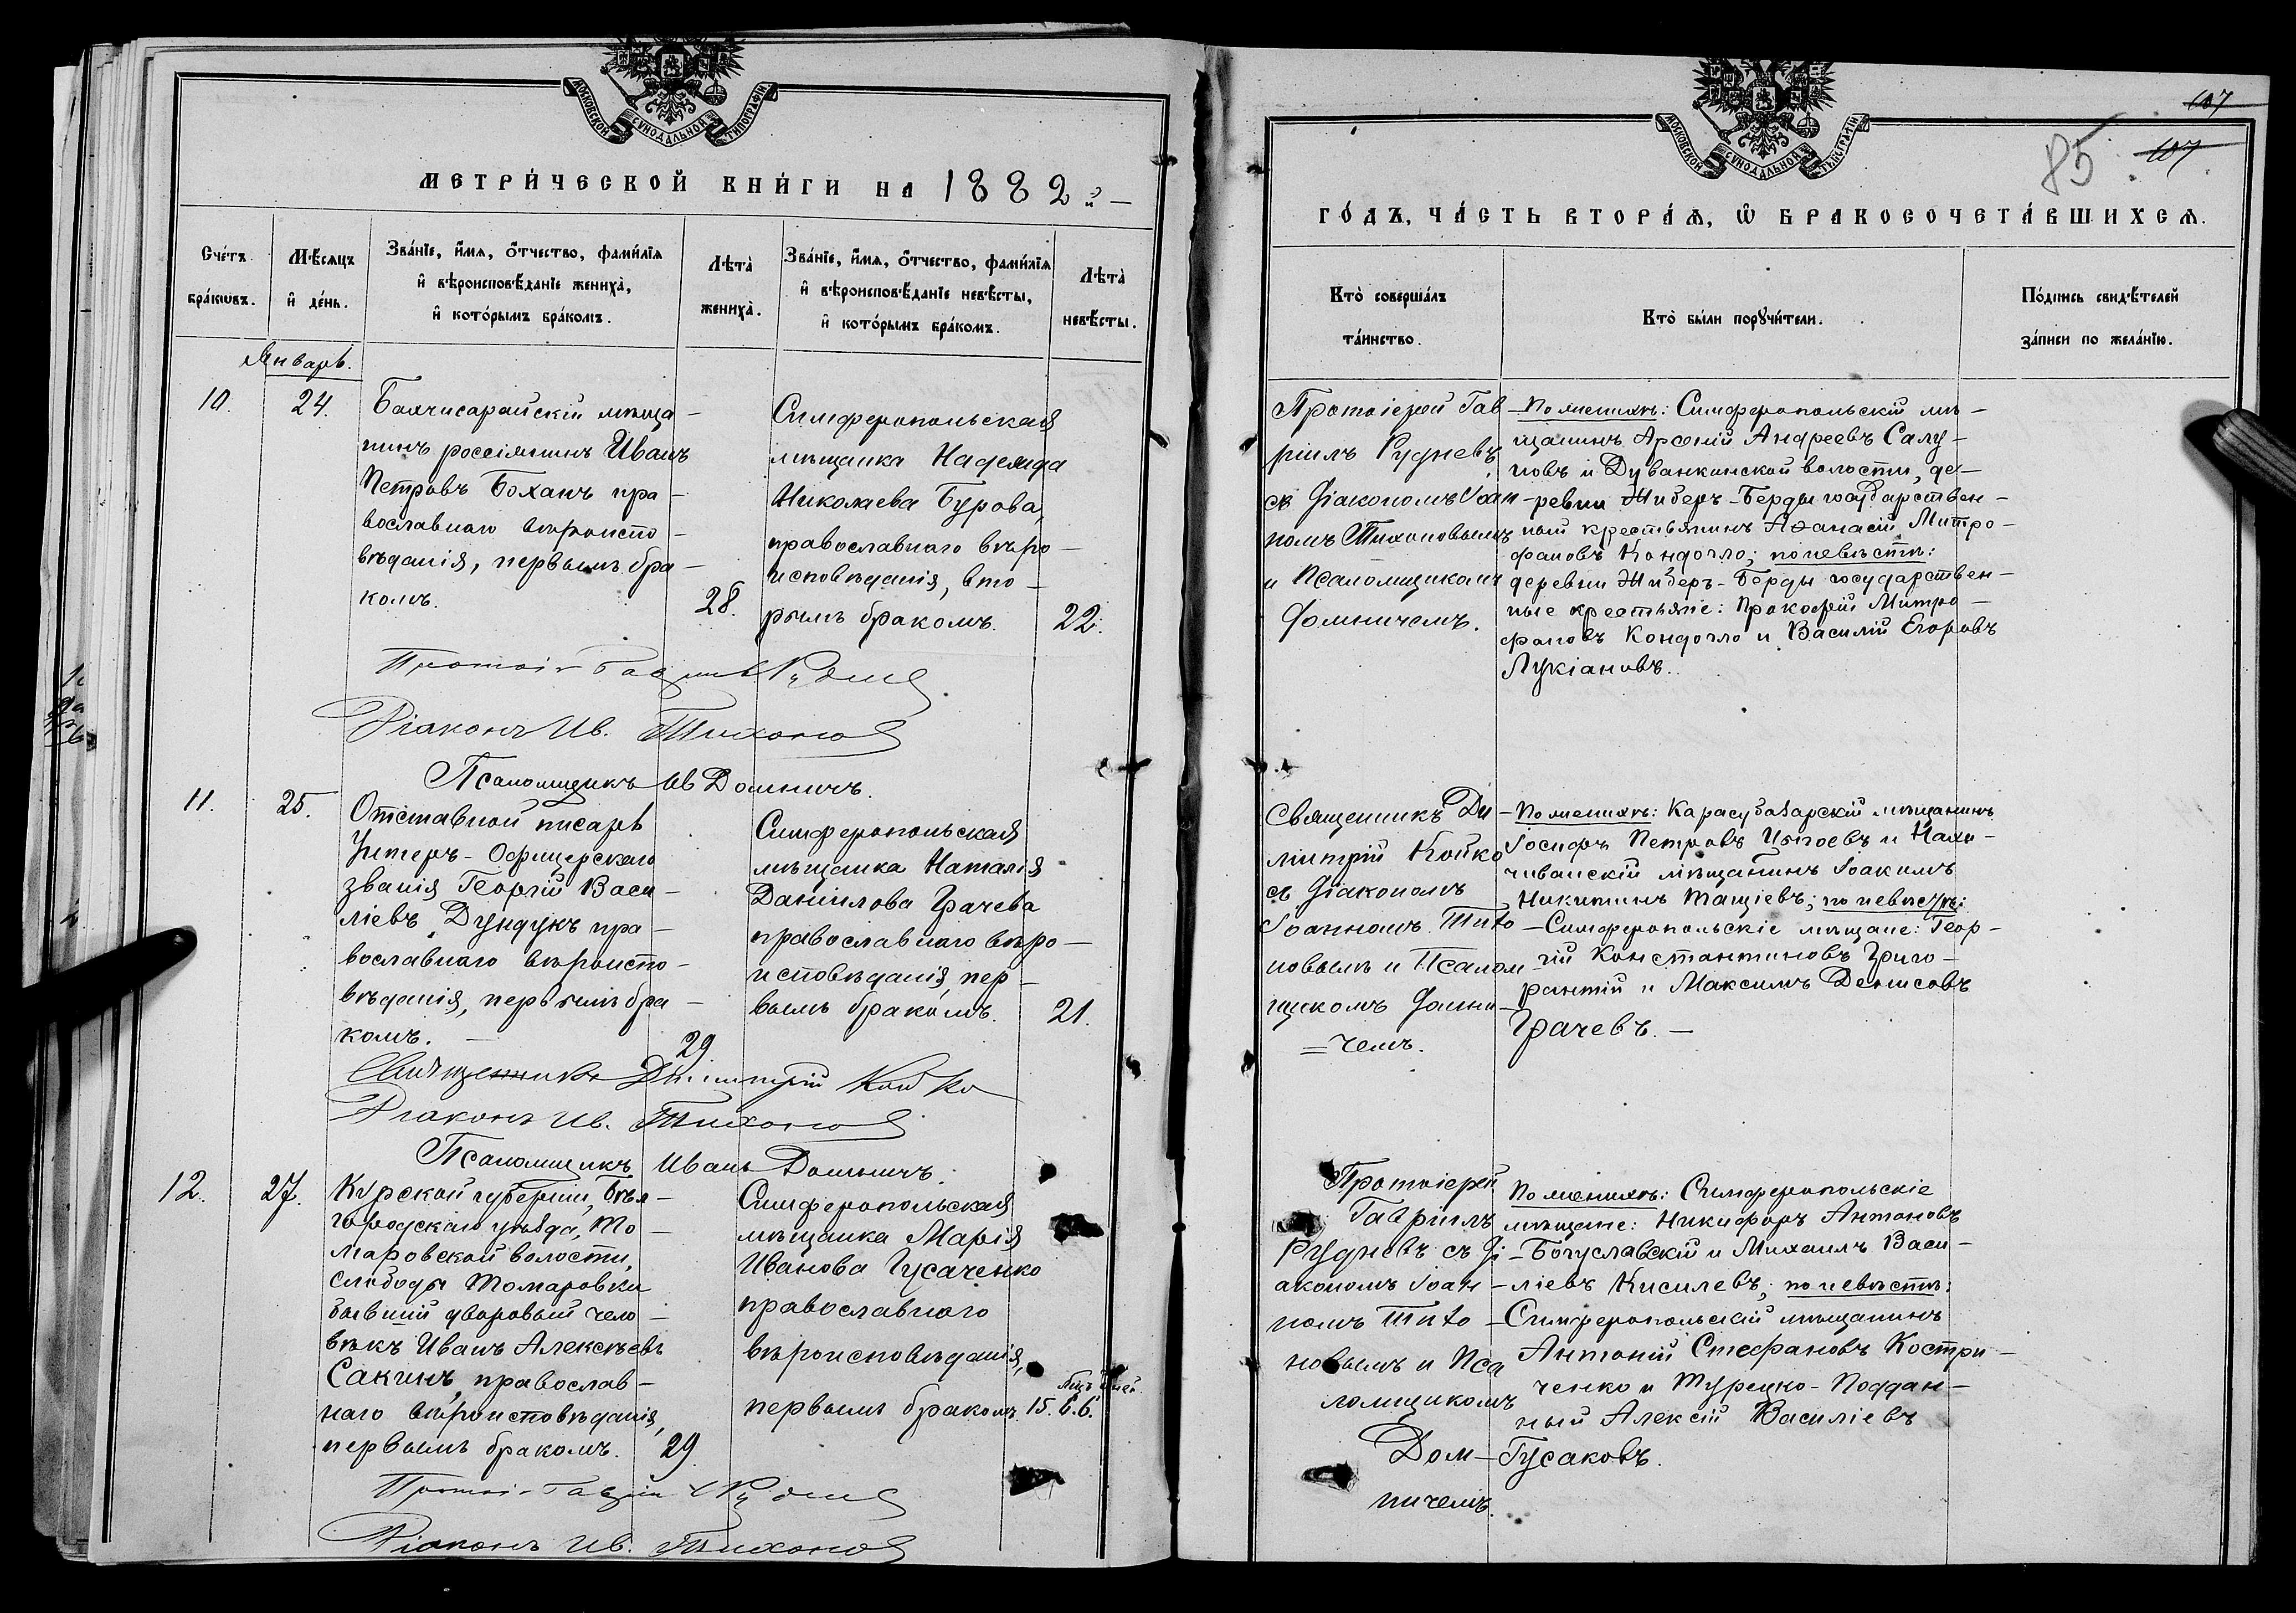 МОСКОВСКОЙ СУНОДАЛЬНОЙ ТИПОГРАФІИ
МЕТРИ́ЧЕСКОЙ КНИ́ГИ НА 1882 й
Сче́тъ бра́кѡвъ.
Мѣ́сяцъ и҆ де́нь.
Зва́нїе, и҆́мѧ, ѻ҆́тчество, фами́лїѧ
и҆ вѣроисповѣ́данїе жениха̀,
и҆ кото́рымъ бра́комъ.
Лѣ́та жениха̀.
Зва́нїе, и҆́мѧ, ѻ҆́тчество, фами́лїѧ
и҆ вѣроисповѣ́данїе невѣ́сты,
и҆ кото́рымъ бра́комъ.
Лѣ́та невѣ́сты.
Январь.
10.
24.
Бахчисарайскій мѣща-
нинъ россіянинъ Иванъ
Петровъ Боханъ пра-
вославнаго вѣроиспо-
вѣданія, первымъ бра-
комъ.
28.
Симферопольская
мѣщанка Надежда
Николаева Бурова,
православнаго вѣро-
исповѣданія, вто-
рымъ бракомъ.
22.
Протоі- Гавріилъ Рудневъ
Діаконъ Ив. Тихоновъ
Псаломщикъ Ив Домничъ.
11.
25.
Отставной писарь
Унтеръ-Офицерскаго
званія Георгій Васи-
ліевъ Дундукъ пра-
вославнаго вѣроиспо-
вѣданія, первымъ бра-
комъ.
29.
Симферопольская
мѣщанка Наталія
Даніилова Грачева
православнаго вѣро-
исповѣданія, пер-
вымъ бракомъ.
21.
Священникъ Димитрій Койко
Діаконъ Ив. Тихоновъ
Псаломщикъ Иванъ Домничъ.
12.
27.
Курской губерніи, Бѣл-
городскаго уѣзда, То-
маровской волости,
слободы Томаровки
бывшій дворовый чело-
вѣкъ Иванъ Алексѣевъ
Сакинъ, православ-
наго вѣроисповѣданія,
первымъ бракомъ.
29.
Симферопольская
мѣщанка Марія
Иванова Гусаченко
православнаго
вѣроисповѣданія,
первымъ бракомъ.
мѣс. дней.
15. 6. 6.
Протоі- Гавріилъ Рудневъ
Діаконъ Ив. Тихоновъ
МОСКОВСКОЙ СУНОДАЛЬНОЙ ТИПОГРАФІИ
107
107
85.
ГО́ДЪ, ЧА́СТЬ ВТОРА́Ѧ, Ѡ҆ БРАКОСОЧЕТА́ВШИХСѦ.
Кто̀ соверша́лъ
та́инство.
Кто̀ бы́ли порꙋчи́тели.
По́дпись свидѣ́телей
за́писи по жела́нїю.
Протоіерей Гав-
ріилъ Рудневъ
съ Діакономъ Іоан-
номъ Тихоновымъ
и Псаломщикомъ
Домничемъ.
По женихѣ: Симферопольскій мѣ-
щанинъ Арсеній Андреевъ Салу-
новъ и Дуванкинской волости, де-
ревни Жиберъ-Берды государствен-
ный крестьянинъ Аѳанасій Митро-
фановъ Кондогло; по невѣстѣ:
деревни Жиберъ-Берды государствен-
ные крестьяне: Прокофій Митро-
фановъ Кондогло и Василій Егоровъ
Лукіановъ.
Священникъ Ди-
митрій Койко
съ Діакономъ
Іоанномъ Тихо-
новымъ и Псалом-
щикомъ Домни-
=чемъ.
По женихѣ: Карасубазарскій мѣщанинъ
Іосифъ Петровъ и Нахи-
чиванскій мѣщанинъ Іоакимъ
Никитинъ Тащіевъ; по невѣстѣ:
Симферопольскіе мѣщане: Геор-
гій Константиновъ
и Максимъ Денисовъ
Грачевъ.
Протоіерей
Гавріилъ
Рудневъ съ Ді-
акономъ Іоан-
номъ Тихо-
новымъ и Пса-
ломщикомъ
Дом-
ничемъ.
По женихѣ: Симферопольскіе
мѣщане: Никифоръ Антоновъ
Богуславскій и Михаилъ Васи-
ліевъ Кисилевъ; по невѣстѣ:
Симферопольскій мѣщанинъ
Антоній Стефановъ Костри-
ченко и Турецко-Поддан-
ный Алексій Василіевъ
Гусаковъ.